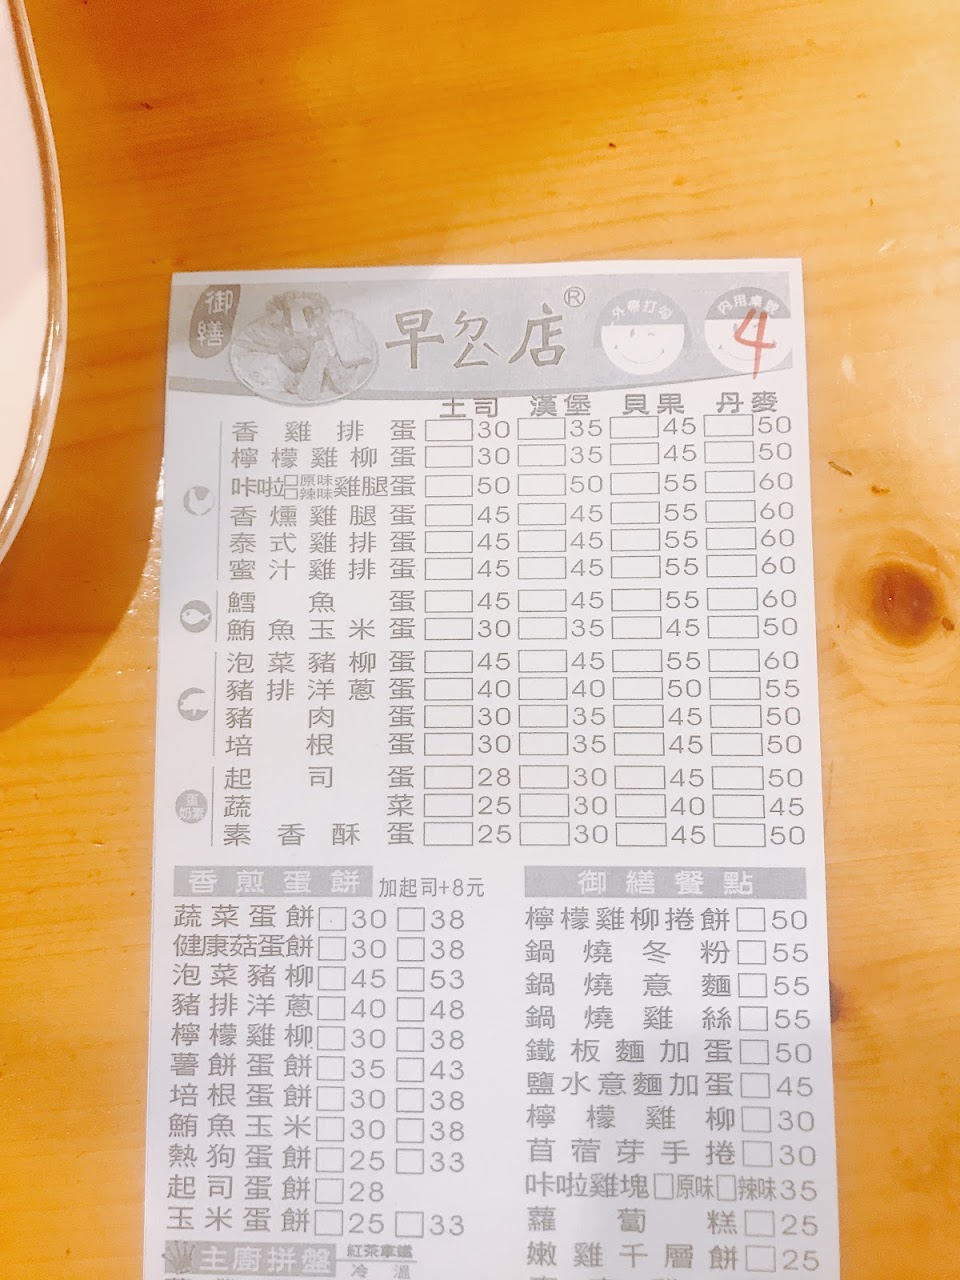 御繕 早公店® 外帶打勾 內用桌號 4
土司 漢堡 貝果 丹麥
香雞排蛋 □30 □35 □45 □50
檸檬雞柳蛋 □30 □35 □45 □50
咔啦□原味□辣味雞腿蛋 □50 □50 □55 □60
香燻雞腿蛋 □45 □45 □55 □60
泰式雞排蛋 □45 □45 □55 □60
蜜汁雞排蛋 □45 □45 □55 □60
鱈魚蛋 □45 □45 □55 □60
鮪魚玉米蛋 □30 □35 □45 □50
泡菜豬柳蛋 □45 □45 □55 □60
豬排洋蔥蛋 □40 □40 □50 □55
豬肉蛋 □30 □35 □45 □50
培根蛋 □30 □35 □45 □50
蛋奶素
起司蛋 □28 □30 □45 □50
蔬菜 □25 □30 □40 □45
素香酥蛋 □25 □30 □45 □50
香煎蛋餅 加起司+8元
蔬菜蛋餅 □30 □38
健康菇蛋餅 □30 □38
泡菜豬柳 □45 □53
豬排洋蔥 □40 □48
檸檬雞柳 □30 □38
薯餅蛋餅 □35 □43
培根蛋餅 □30 □38
鮪魚玉米 □30 □38
熱狗蛋餅 □25 □33
起司蛋餅 □28
玉米蛋餅 □25 □33
主廚拼盤 紅茶拿鐵
冷 溫
御繕餐點
檸檬雞柳捲餅 □50
鍋燒冬粉 □55
鍋燒意麵 □55
鍋燒雞絲 □55
鐵板麵加蛋 □50
鹽水意麵加蛋 □45
檸檬雞柳 □30
苜蓿芽手捲 □30
咔啦雞塊 □原味□辣味35
蘿蔔糕 □25
嫩雞千層餅 □25